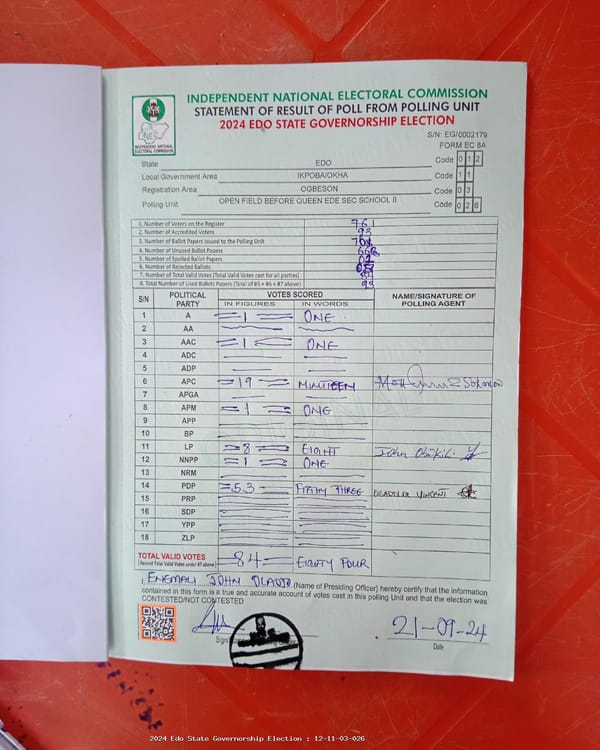 INDEPENDENT NATIONAL ELECTORAL COMMISSION
STATEMENT OF RESULT OF POLL FROM POLLING UNIT
2024 EDO STATE GOVERNORSHIP ELECTION
INDEPENDENT NATIONAL ELECTORAL COMMISSION
S/N: EG/0002179
FORM EC 8A
State EDO Code 0 1 2
Local Government Area IKPOBA/OKHA Code 1 1
Registration Area OGBESON Code 0 3
Polling Unit OPEN FIELD BEFORE QUEEN EDE SEC SCHOOL II Code 0 2 6
1. Number of Voters on the Register 761
2. Number of Accredited Voters 93
3. Number of Ballot Papers Issued to the Polling Unit
4. Number of Unused Ballot Papers
5. Number of Spoiled Ballot Papers 02
6. Number of Rejected Ballots
7. Number of Total Valid Votes (Total Valid Votes cast for all parties)
8. Total Number of Used Ballots Papers (Total of #5 + #6 + #7 above) 93
S/N POLITICAL PARTY VOTES SCORED NAME/SIGNATURE OF POLLING AGENT
IN FIGURES IN WORDS
1 A 1 ONE
2 AA
3 AAC 1 ONE
4 ADC
5 ADP
6 APC 19 NINTEEN
7 APGA
8 APM 1 ONE
9 APP
10 BP
11 LP 8 EIGHT John
12 NNPP 1 ONE
13 NRM
14 PDP 53 FIFTHY THREE VINCENT
15 PRP
16 SDP
17 YPP
18 ZLP
TOTAL VALID VOTES 84 EIGHTY FOUR
(Record Total Valid Votes under #7 above)
I, ENEMALI JOHN OLADJO (Name of Presiding Officer) hereby certify that the information
contained in this form is a true and accurate account of votes cast in this polling Unit and that the election was
CONTESTED/NOT CONTESTED
21-09-24
Date
2024 Edo State Governorship Election : 12-11-03-026